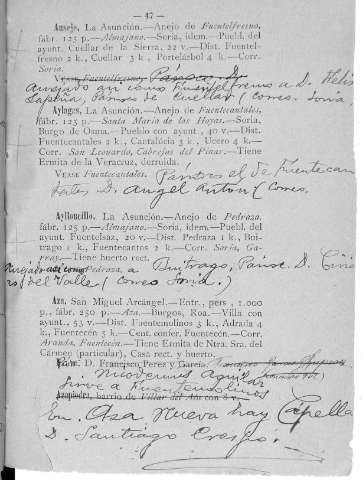 — 47 —
Ausejo, La Asunción.—Anejo de Fuentelfresno,
fábr. 125 p.—Almajano.—Soria, idem.—Puebl. del
ayunt. Cuellar de la Sierra, 22 v.—Dist. Fuentel-
fresno 2 k., Cuellar 3 k., Portelárbol 4 k.—Corr.
Soria.
Véase Fuentelfresno. Párroco D.
Anejado así como Fuentelfresno a D. Félix
Párroco de Cuellar / Correo. Soria
Aylagas, La Asunción.—Anejo de Fuentecantales,
fábr. 125 p.—Santa María de las Hoyas.—Soria,
Burgo de Osma.—Pueblo con ayunt., 40 v.—Dist.
Fuentecantales 2 k., Cantalúcia 3 k., Ucero 4 k.—
Corr. San Leonardo, Cabrejas del Pinar.—Tiene
Ermita de la Veracruz, derruida.
Véase Fuentecantales. Párroco el de Fuentecan
tales D. Angel Antón / Correo.
Aylloncillo, La Asunción.—Anejo de Pedraza,
fábr. 125 p.—Almajano.—Soria, idem.—Puebl. del
ayunt. Fuentelsaz, 20 v.—Dist. Pedraza 1 k., Boi-
trago 1 k., Fuentecantos 2 k.—Corr. Soria, Ga-
rray.—Tiene huerto rect.
Anejado así como Pedraza, a Buitrago, Párroc. D. Ciria
co del Valle / (Correo Soria.)
Aza, San Miguel Arcángel.—Entr., pers., 1.000
p., fábr. 250 p.—Aza.—Burgos, Roa.—Villa con
ayunt., 53 v.—Dist. Fuentemolinos 3 k., Adrada 4
k., Fuentecén 3 k.—Cent. confer. Fuentecén.—Corr.
Aranda, Fuentecén.—Tiene Ermita de Ntra. Sra. del
Cármen (particular), Casa rect. y huerto.
Párr. D. Francisco Perez y Garcia.
Aguilar
sirve a Fuentemolinos
Azapiedra, barrio de Villar del Ala con 8 v.
En Aza Nueva hay Capella
D. Santiago Crespo.